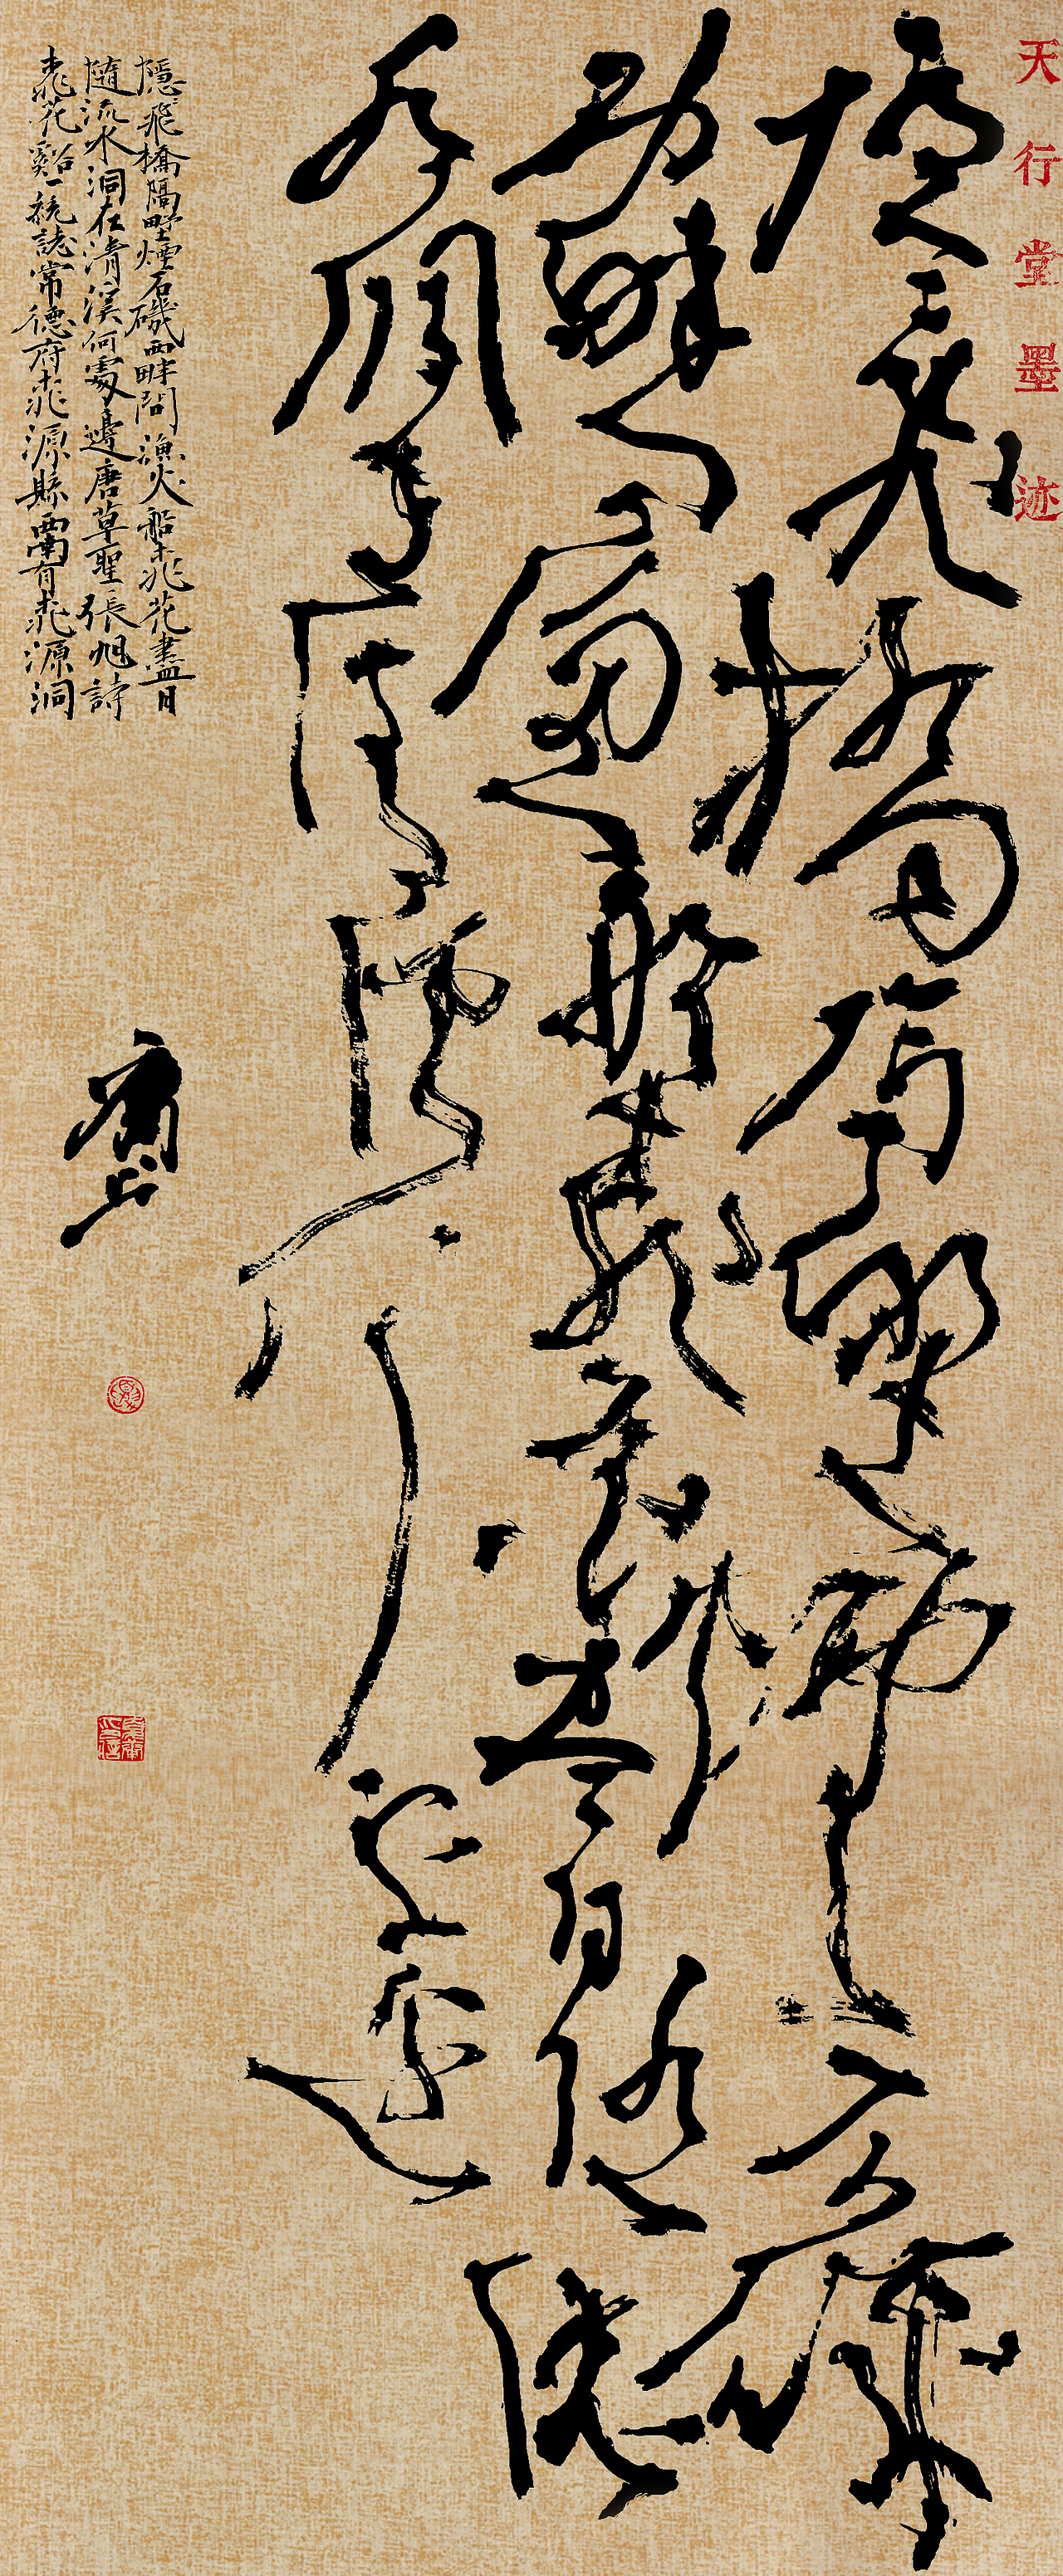 天行堂墨迹
隱〻飛橋隔野煙石磯
西畔問漁船桃花盡日隨流
水洞在清溪何處邊
隱〻飛橋隔野煙石磯西畔問漁火船桃花盡日
隨流水洞在清溪何處邊唐草聖張旭詩
桃花谿一統誌常德府桃源縣西南有桃源洞